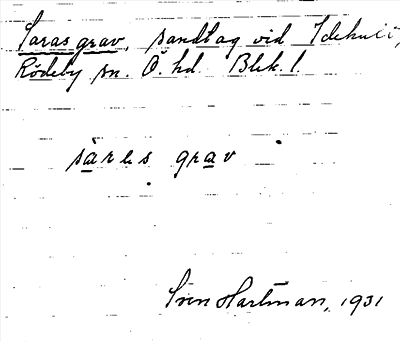 Saras grav, sandtag vid Idehult,
Rödeby sn. Ö. hd. Blek. l.
säres grav
Sven Hartman, 1931